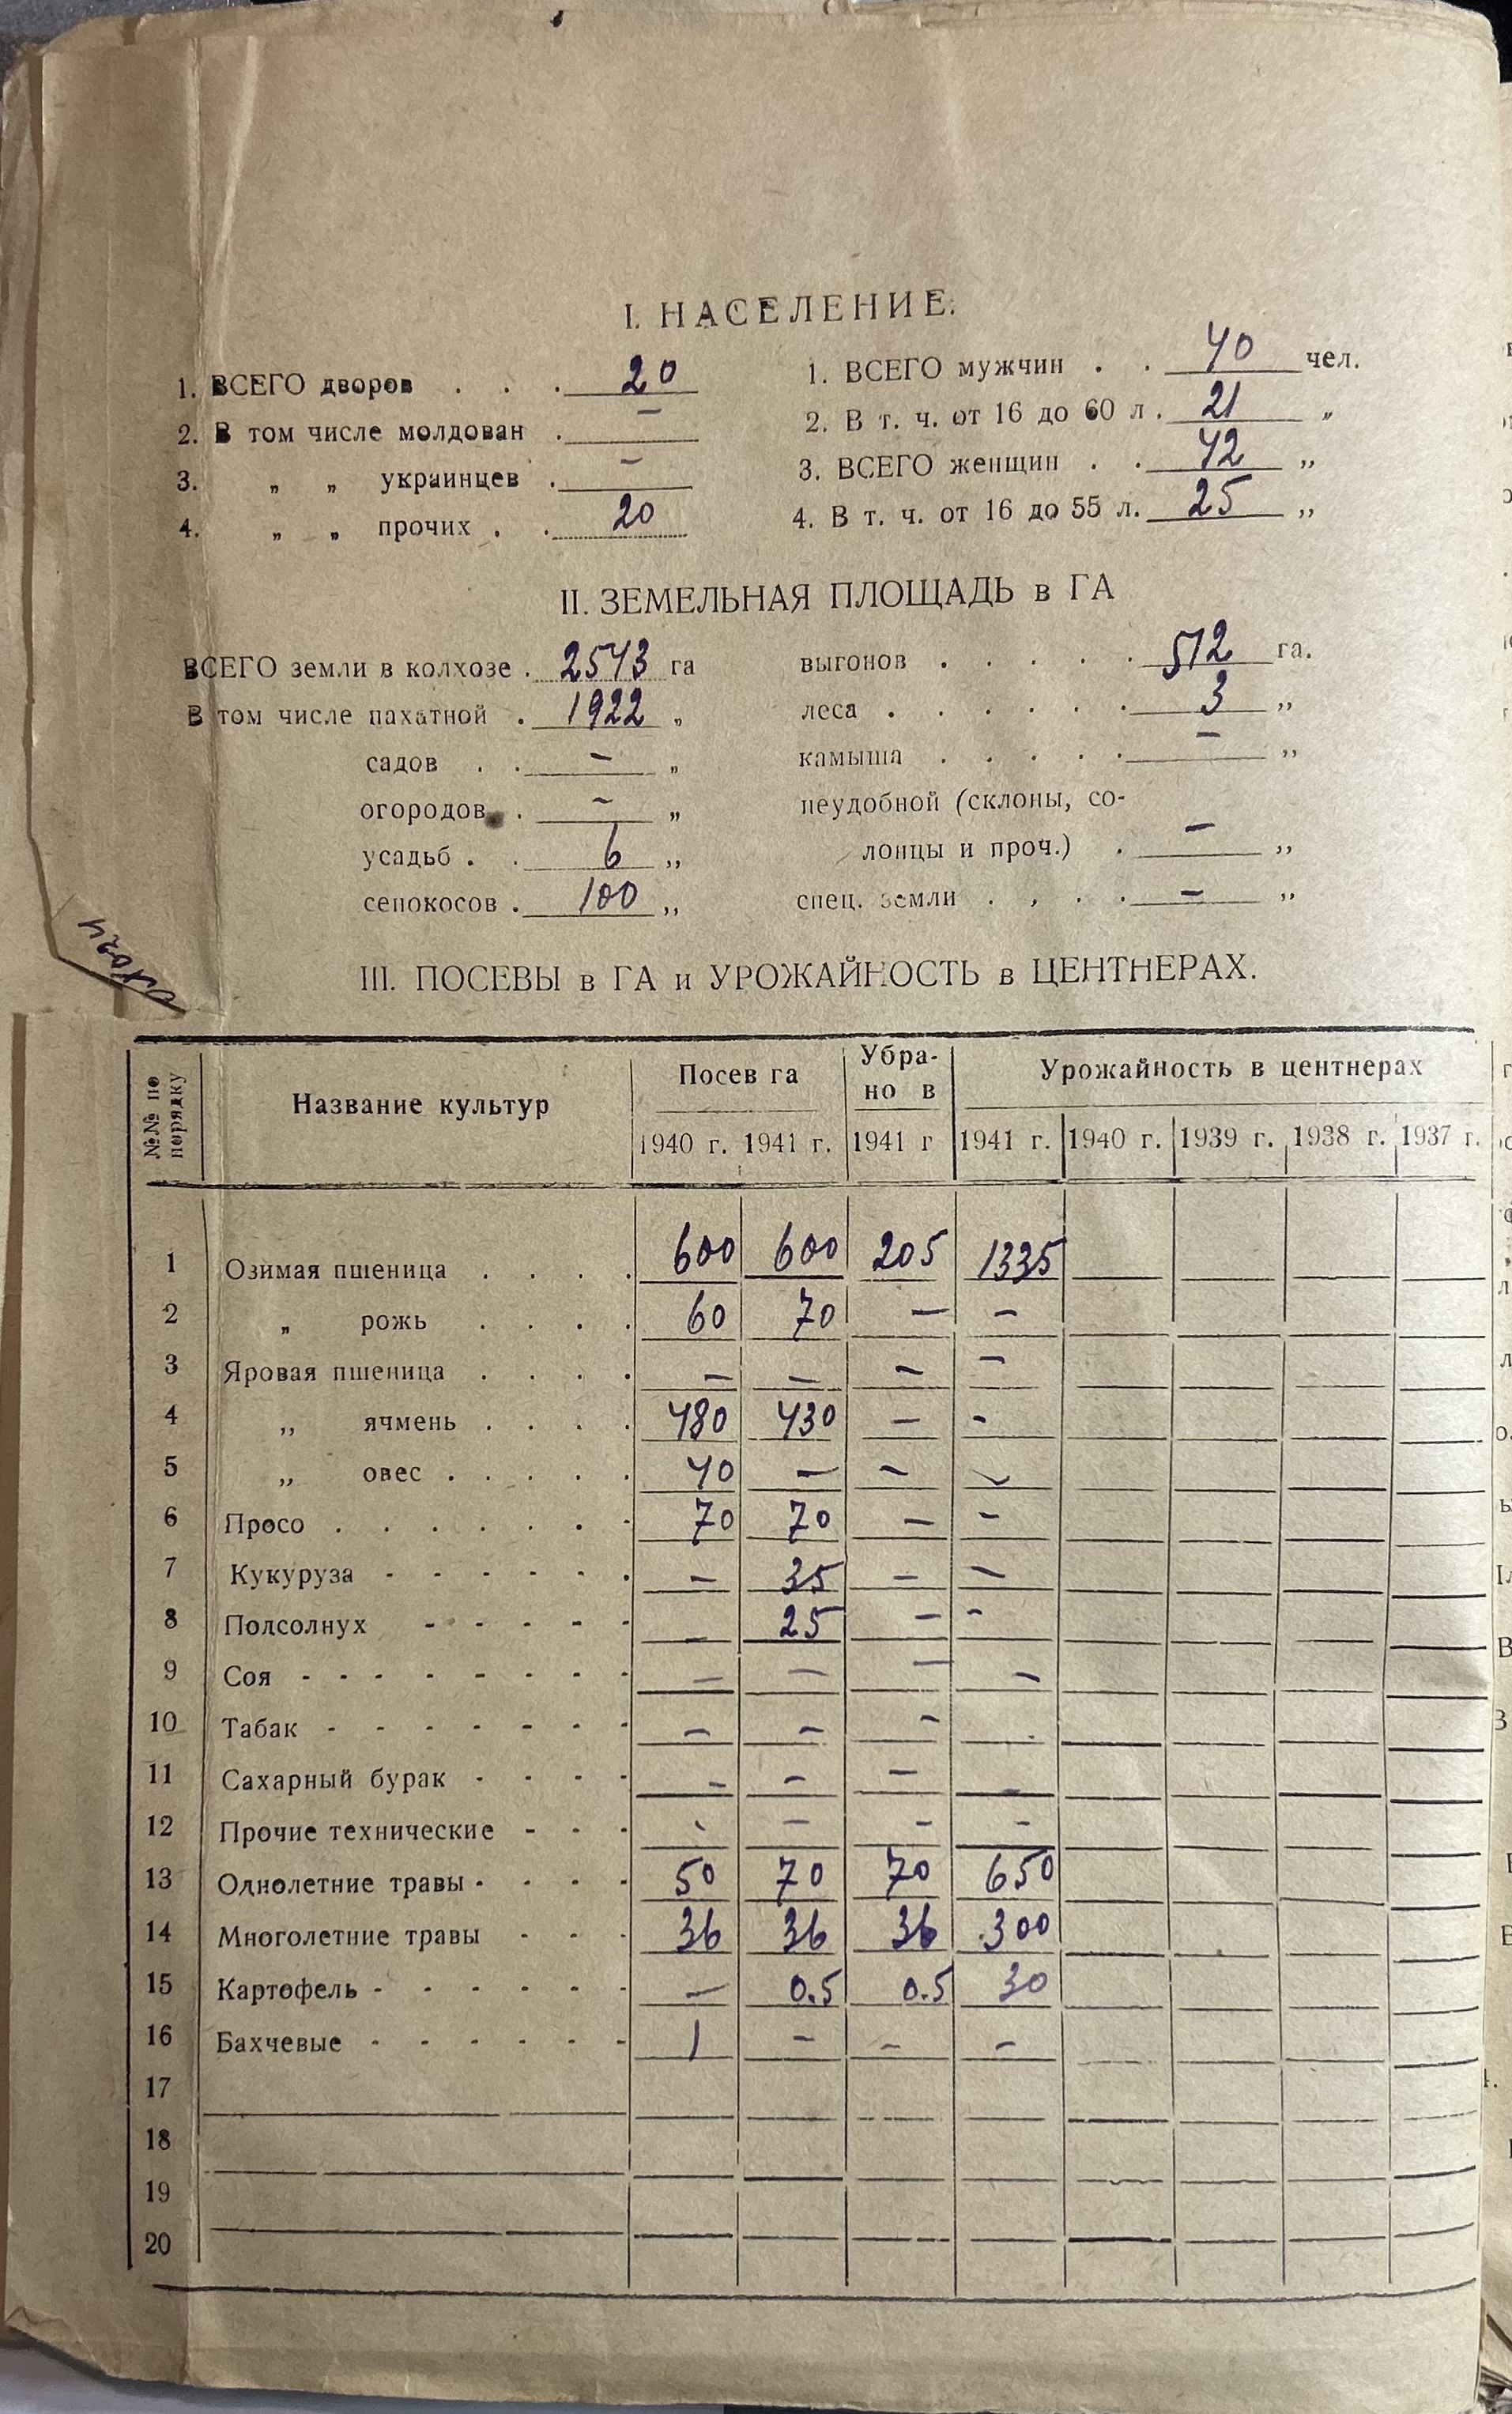 I. НАСЕЛЕНИЕ.
1. ВСЕГО дворов . . . 20
2. В том числе молдован . —
3. „ „ украинцев . —
4. „ „ прочих . . 20
1. ВСЕГО мужчин . . 40 чел.
2. В т. ч. от 16 до 60 л . 21 „
3. ВСЕГО женщин . . 42 „
4. В т. ч. от 16 до 55 л. 25 „
II. ЗЕМЕЛЬНАЯ ПЛОЩАДЬ в ГА
ВСЕГО земли в колхозе . 2543 га
В том числе пахатной . 1922 „
садов . . — „
огородов . — „
усадьб . . 6 „
сенокосов . 100 „
выгонов . . . . . 512 га.
леса . . . . . . 3 „
камыша . . . . . — „
неудобной (склоны, со-
лонцы и проч.) . — „
спец. земли . . . . — „
III. ПОСЕВЫ в ГА и УРОЖАЙНОСТЬ в ЦЕНТНЕРАХ.
№№ по порядку Название культур Посев га Убра- но в Урожайность в центнерах
1940 г. 1941 г. 1941 г 1941 г. 1940 г. 1939 г. 1938 г. 1937 г.
1 Озимая пшеница . . . . 600 600 205 1335
2 „ рожь . . . . 60 70 — —
3 Яровая пшеница . . . . — — — —
4 „ ячмень . . . . 480 430 — —
5 „ овес . . . . . 40 — — —
6 Просо . . . . . . . 70 70 — —
7 Кукуруза - - - - - . — 35 — —
8 Подсолнух - - - - - — 25 — —
9 Соя - - - - - - - — — — —
10 Табак - - - - - - - — — —
11 Сахарный бурак - - - - — — — —
12 Прочие технические - - - — — — —
13 Однолетние травы - - - - 50 70 70 650
14 Многолетние травы - - - 36 36 36 300
15 Картофель - - - - - - — 0.5 0.5 30
16 Бахчевые - - - - - - 1 — — —
17
18
19
20